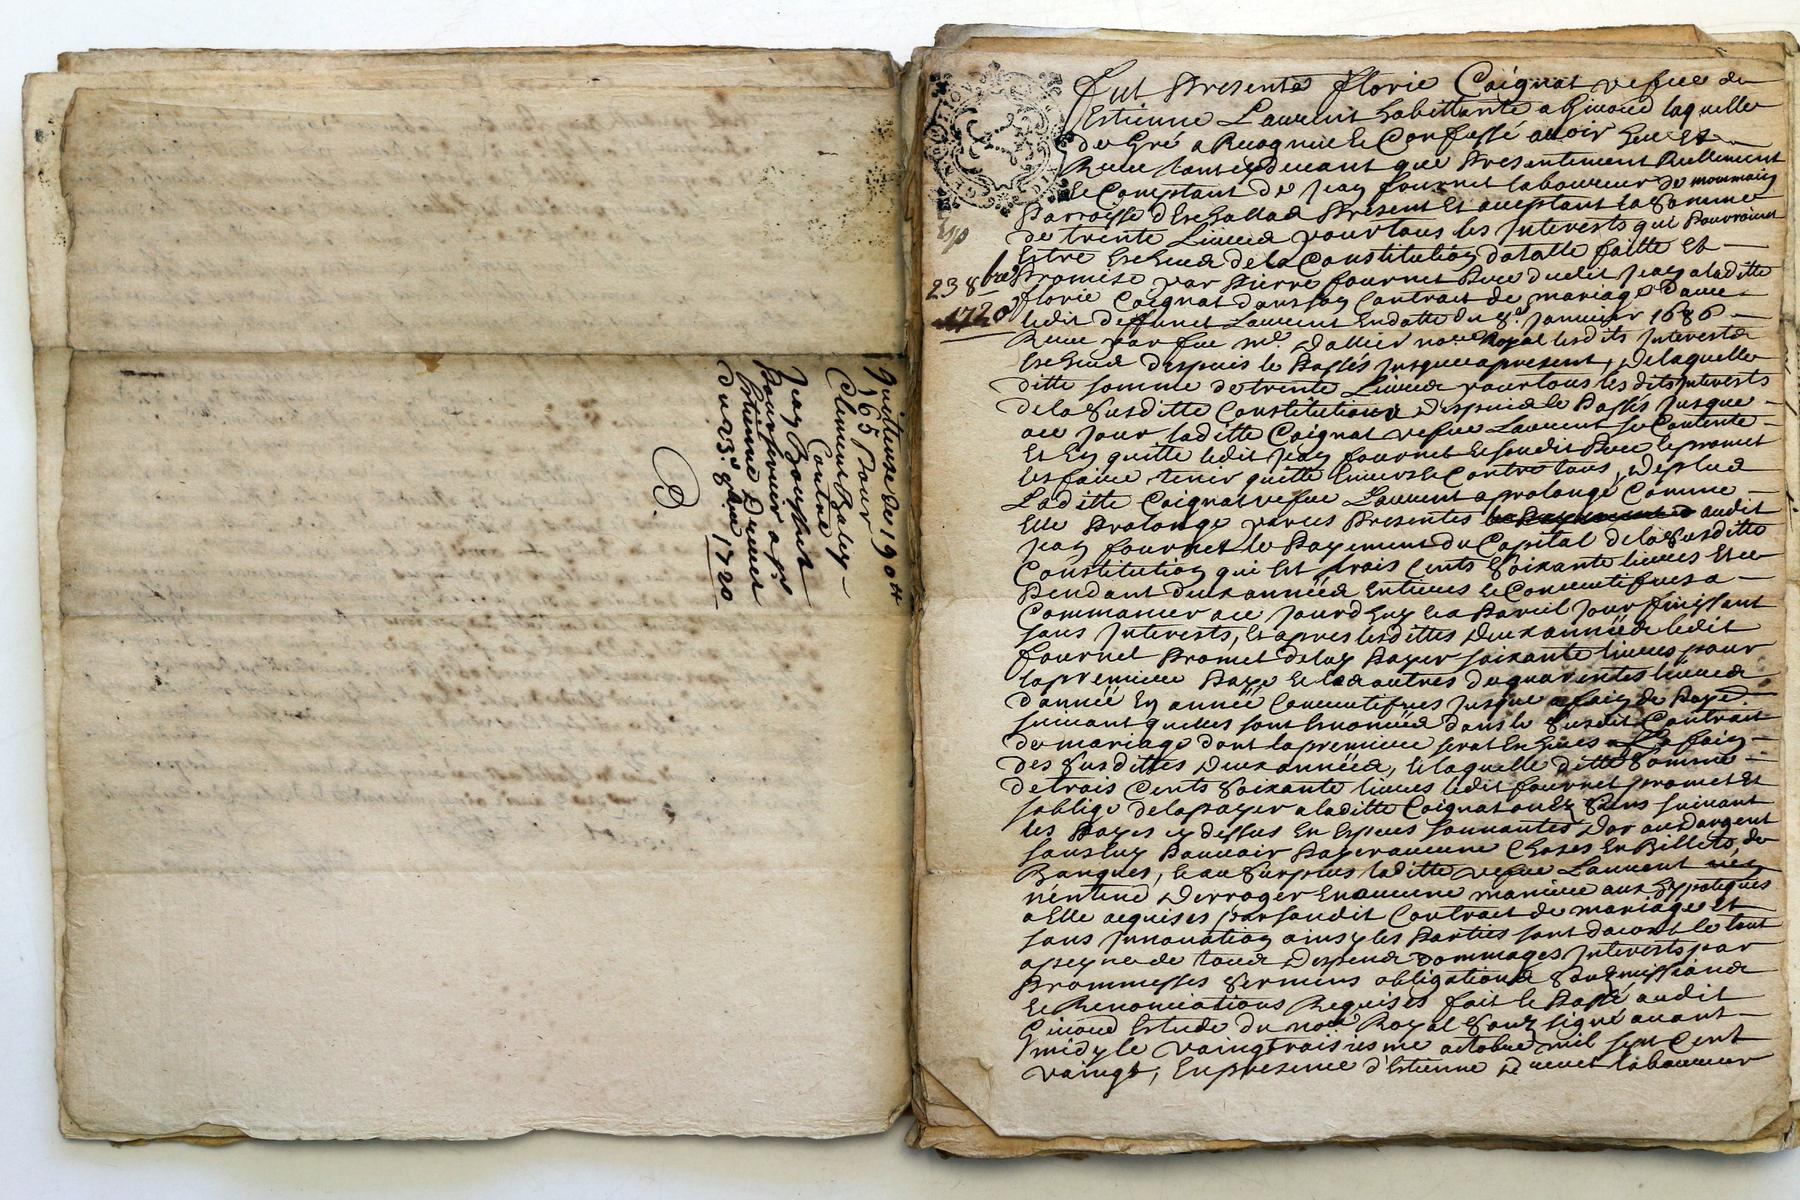 Quittense du 19 8bre
1665 Pour
Clement Baley
Contre
Jean
Estienne Drevet
du 23.e 8bre 1720
23 8bre
1720
fut Presente florie Coignat vefue du
Estienne Laurent habittante a Giuord laquelle
de Gré a Recognu et Confessé auoir heu et
Receu tant cydeuant que Presentement Reellement
et Comptant de Jean fournel laboureur de mommain
Parroisse d'Eschallad Present et aceptant la somme
de trente Liures pour tous les Interests qui Pourroient
Estre Escheud de la Constitution dotalle faitte Et
Promise par Pierre fournel Pere dudit Jean a laditte
florie Coignat dans son Contrait de mariage d'auec
ledit deffunct Laurent En datte du 8.e Januier 1686
Receu par feu me Dallier nore Royal lesdits Interests
Escheud despuis le Passés Jusque apresent, de laquelle
ditte somme de trente Liures pour tous lesdits Interests
de la susditte Constitution despuis le Passés Jusque
ace Jour laditte Coignat vefue Laurent se Contente
Et En quitte ledit Jean fournel le susdit Pere et promet
les faire tenir quitte Enuers et Contre tous, de plus
Laditte Coignat vefue Laurent a prolongé Comme
Elle Prolonge par ces Presentes audit
Jean fournel le Payement du Capital de la susditte
Constitution qui Est trois Cents soixante liures Et ce
Pendant deux années Entieres et Consecutifues a
Commancer ace Jourdhuy Et a Pareil Jour finissant
sans Interests, Et apres lesdittes deux années ledit
fournel Promet de luy Payer soixante liures pour
la premiere Paye et les autres de quarentes liures
d'année En année Consecutifues Jusque a fain de Paye
suiuant quelles sont Enoncées dans le susdit Contrait
de mariage dont la premiere serat Escheues a La fain
des susdittes deux années, et laquelle ditte somme
de trois Cents soixante liures ledit fournel promet et
soblige de la payer a laditte Coignat ou es siens suiuant
les Payes cy dessus En Especes sonnantes d'or ou d'argent
sans luy Pouuoir Payer aucune Choses En Billets de
Banques, et au surplus laditte vefue Laurent
n'entend Derroger En aucune maniere aux hypoteques
a Elle acquises par sondit Contrait de mariage et
sans Innouation ainsy les Parties sont d'acord le tout
a peyne de tous Despend Dommages Interests par
Prommesses sermens obligations soubmissions
et Renonciations Requises fait et Passé audit
Giuord Estude du nore Royal soubz signé auant
midy le vaingtroisiesme octobre mil sept Cent
vaingt, En presence d'Estienne Drevet laboureur